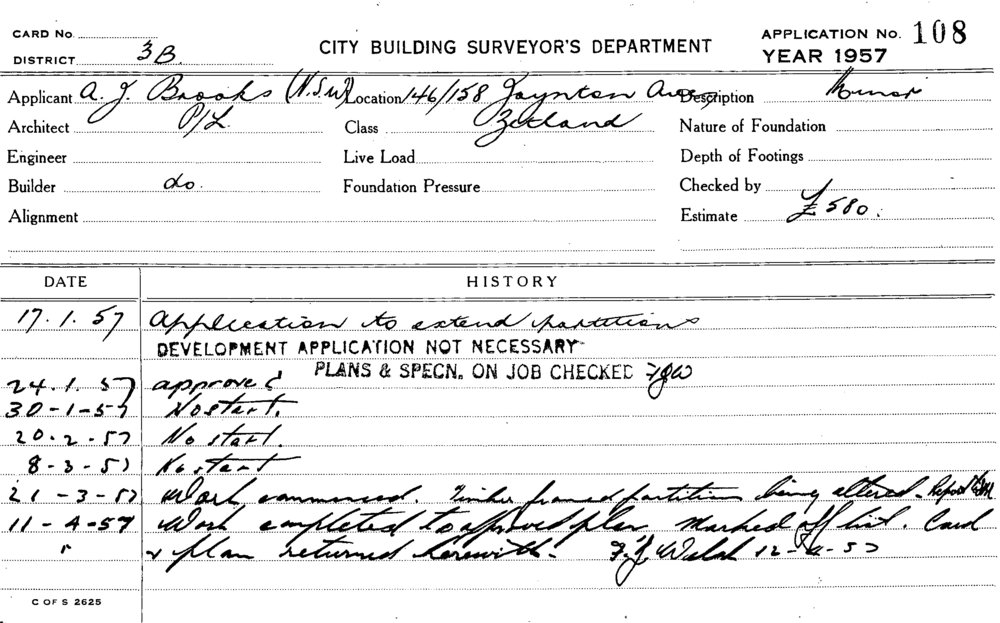 CARD No.
DISTRICT 3B.
CITY BUILDING SURVEYOR'S DEPARTMENT
APPLICATION No. 108
YEAR 1957
Applicant A. J. Brooks (N.S.W) Location 146/158 Joynton Ave, Description Minor
Architect P/L. Class Zetland Nature of Foundation
Engineer Live Load Depth of Footings
Builder do. Foundation Pressure Checked by
Alignment Estimate £580:
DATE HISTORY
17.1.57 Application to extend partitions
DEVELOPMENT APPLICATION NOT NECESSARY
PLANS & SPECN. ON JOB CHECKED
24.1.57 approved
30-1-57 No start.
20.2.57 No start.
8-3-57 No start
21-3-57 Work commenced. Timber framed partition being altered. Report
11-4-57 Work completed to approved plan marked off list. Card
" & plan returned herewith. F.J. Walsh 12-4-57
C OF S 2625